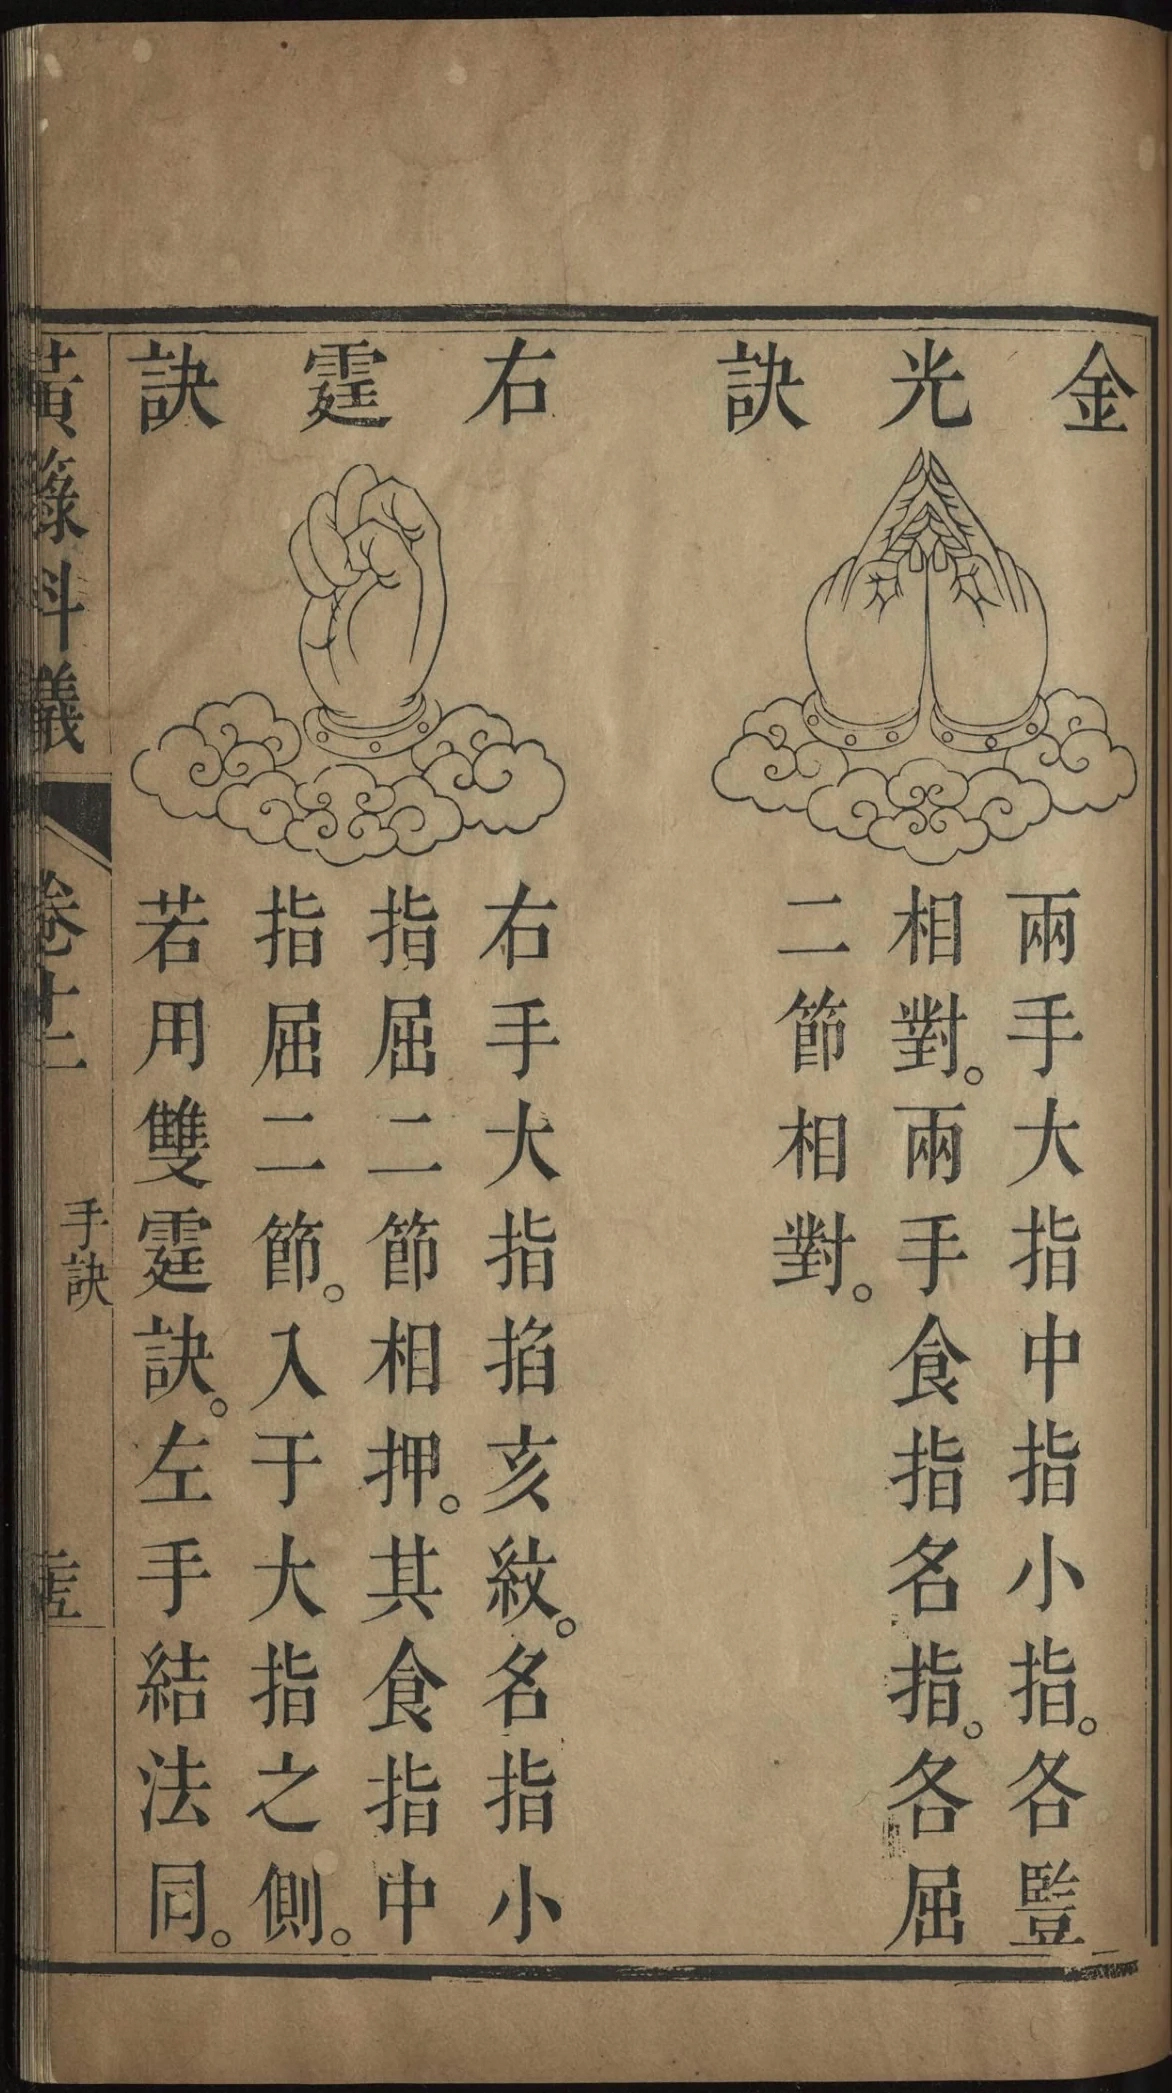 金光訣
兩手大指中指小指。各豎
相對。兩手食指名指。各屈
二節相對。
右霆訣
右手大指掐亥紋。名指小
指屈二節相押。其食指中
指屈二節。入于大指之側。
若用雙霆訣。左手結法同。
黃籙科儀
卷十二
手訣